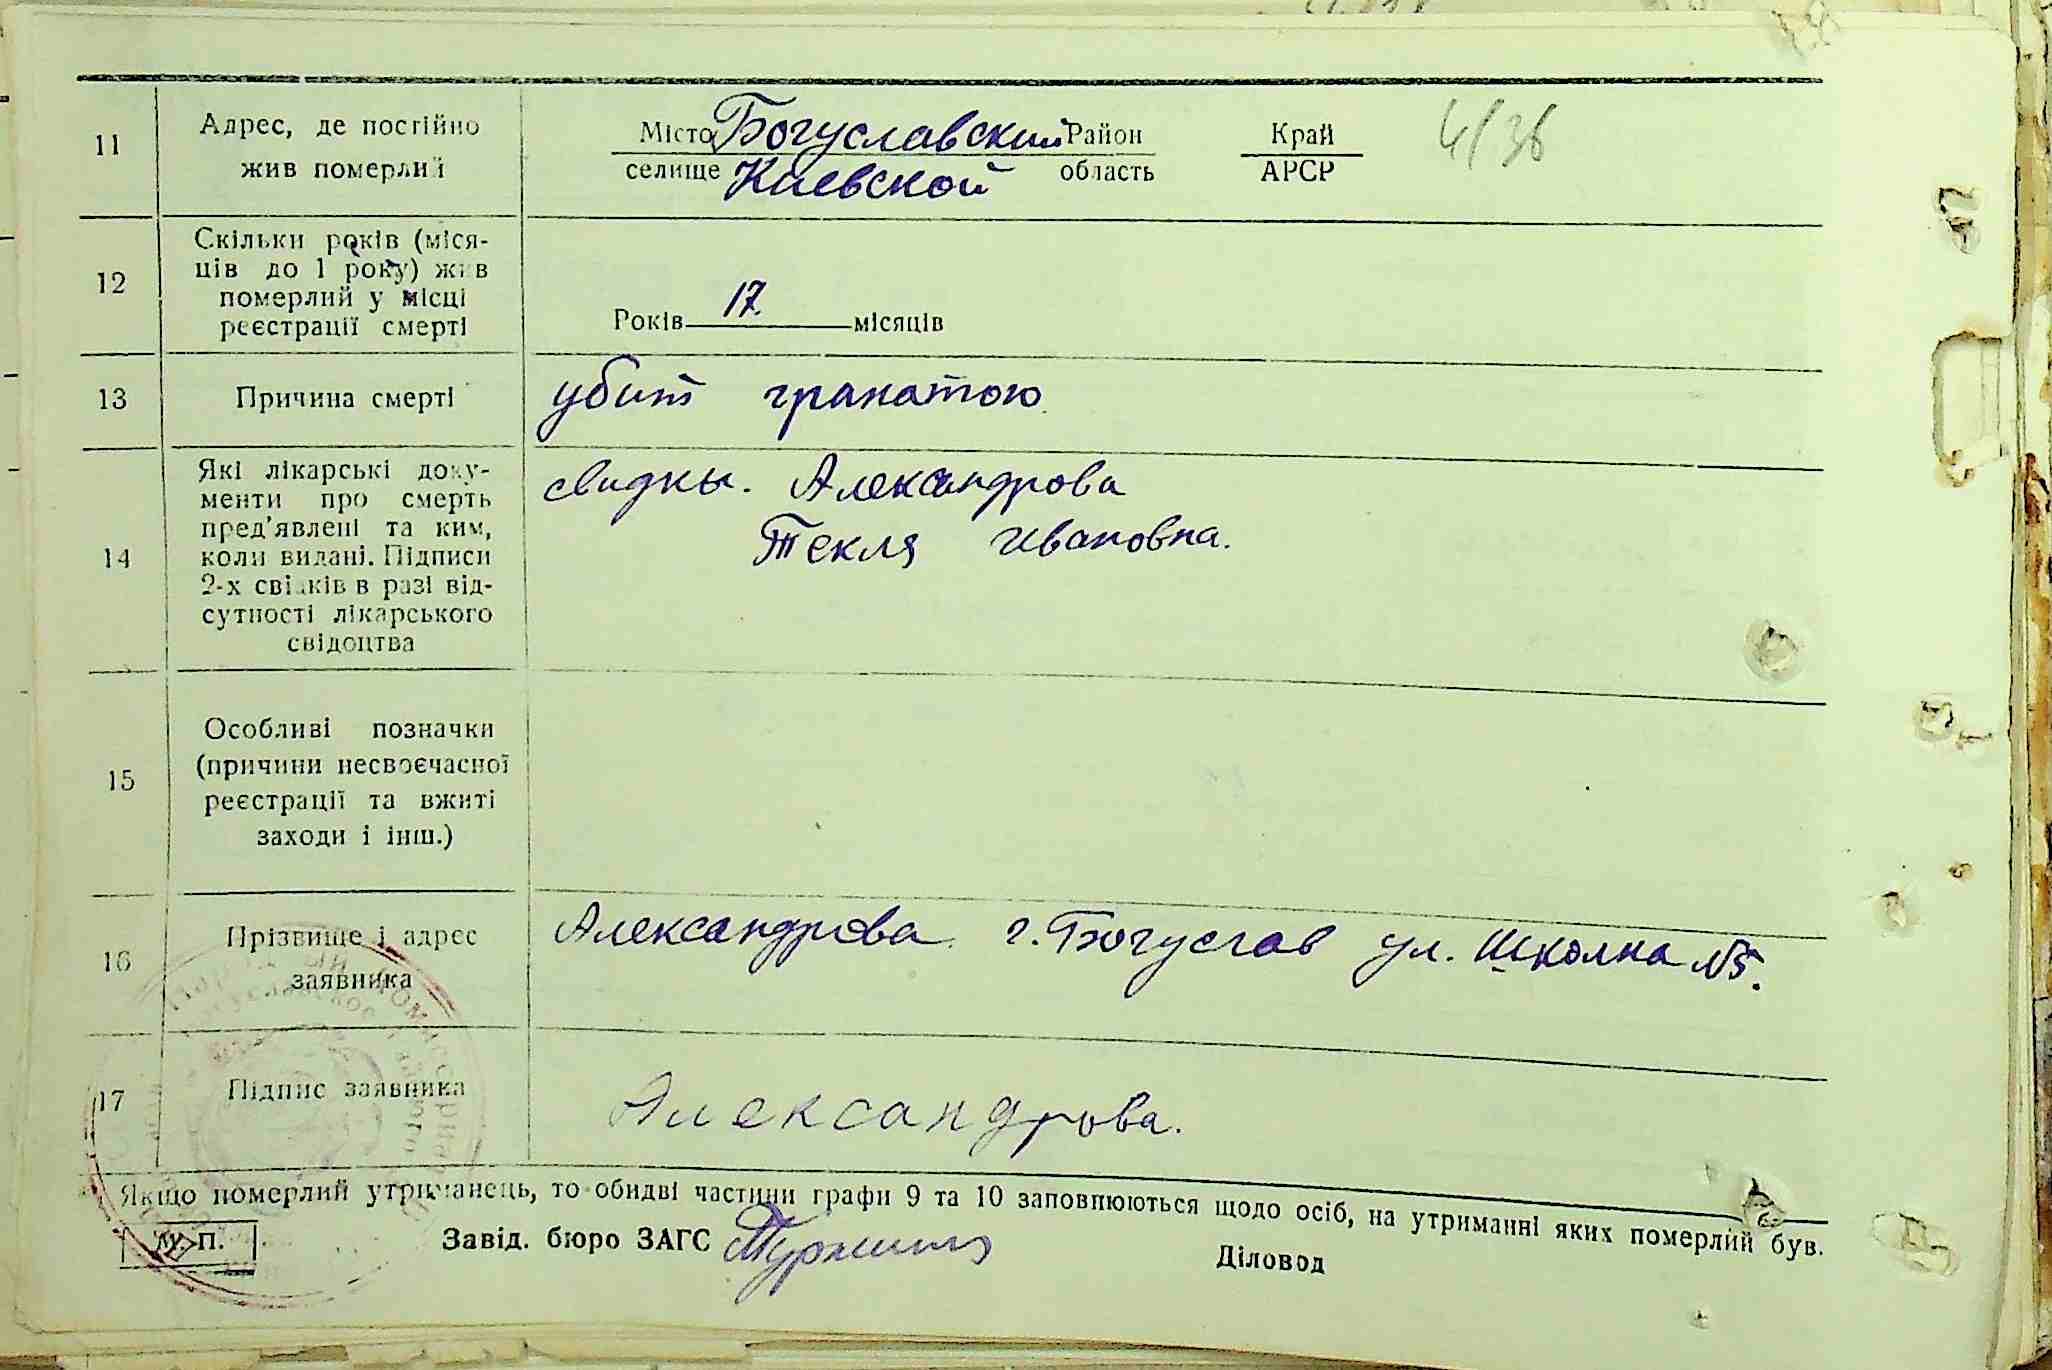 11
Адрес, де постійно
жив померлий
Місто Богуславский Район
селище Киевской область
Край
АРСР
4/36
12
Скільки років (міся-
ців до 1 року) жив
померлий у місці
реєстрації смерті
Років 17. місяців
13
Причина смерті
убит гранатою
14
Які лікарські доку-
менти про смерть
пред'явлені та ким,
коли видані. Підписи
2-х свідків в разі від-
сутності лікарського
свідоцтва
свидки. Александрова
Текля Ивановна.
15
Особливі позначки
(причини несвоєчасної
реєстрації та вжиті
заходи і інш.)
16
Прізвище і адрес
заявника
Александрова. г. Богуслав ул. Школна №5.
17
Підпис заявника
Александрова.
Якщо померлий утриманець, то обидві частини графи 9 та 10 заповнюються щодо осіб, на утриманні яких померлий був.
М. П.
Завід. бюро ЗАГС
Діловод